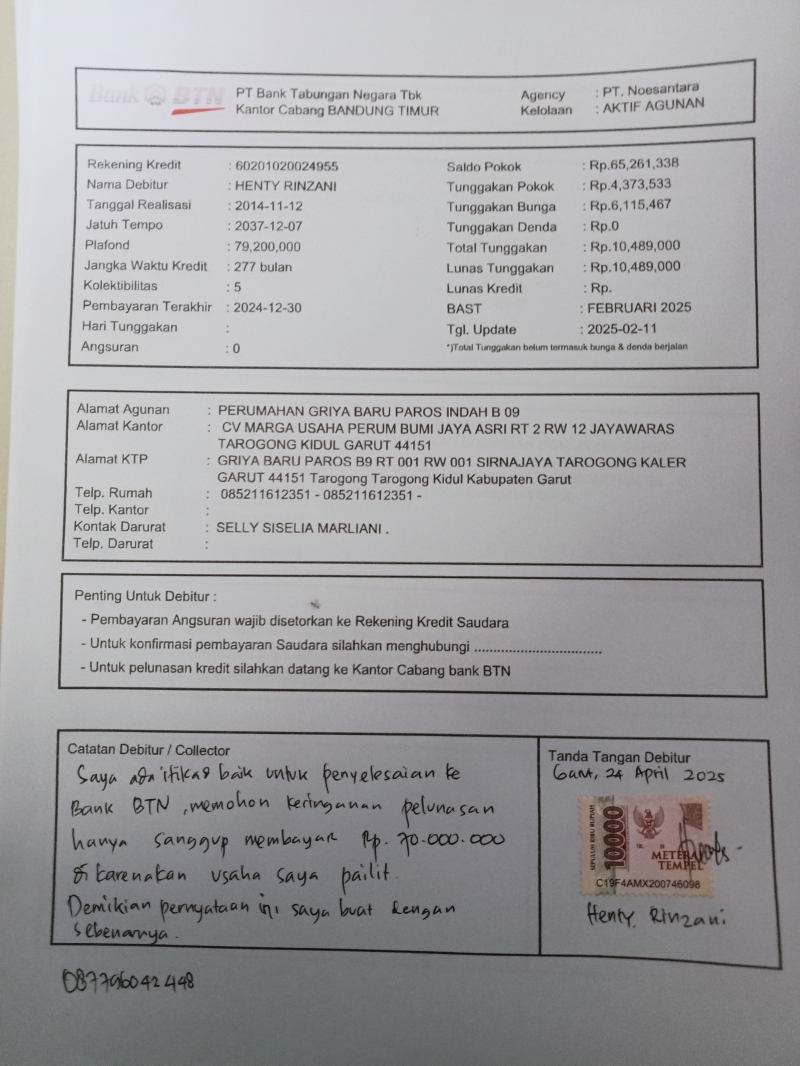 Bank BTN
PT Bank Tabungan Negara Tbk
Kantor Cabang BANDUNG TIMUR
Agency : PT. Noesantara
Kelolaan : AKTIF AGUNAN
Rekening Kredit : 60201020024955
Nama Debitur : HENTY RINZANI
Tanggal Realisasi : 2014-11-12
Jatuh Tempo : 2037-12-07
Plafond : 79,200,000
Jangka Waktu Kredit : 277 bulan
Kolektibilitas : 5
Pembayaran Terakhir : 2024-12-30
Hari Tunggakan :
Angsuran : 0
Saldo Pokok : Rp.65,261,338
Tunggakan Pokok : Rp.4,373,533
Tunggakan Bunga : Rp.6,115,467
Tunggakan Denda : Rp.0
Total Tunggakan : Rp.10,489,000
Lunas Tunggakan : Rp.10,489,000
Lunas Kredit : Rp.
BAST : FEBRUARI 2025
Tgl. Update : 2025-02-11
*)Total Tunggakan belum termasuk bunga & denda berjalan
Alamat Agunan : PERUMAHAN GRIYA BARU PAROS INDAH B 09
Alamat Kantor : CV MARGA USAHA PERUM BUMI JAYA ASRI RT 2 RW 12 JAYAWARAS
TAROGONG KIDUL GARUT 44151
Alamat KTP : GRIYA BARU PAROS B9 RT 001 RW 001 SIRNAJAYA TAROGONG KALER
GARUT 44151 Tarogong Tarogong Kidul Kabupaten Garut
Telp. Rumah : 085211612351 - 085211612351 -
Telp. Kantor :
Kontak Darurat : SELLY SISELIA MARLIANI .
Telp. Darurat :
Penting Untuk Debitur :
- Pembayaran Angsuran wajib disetorkan ke Rekening Kredit Saudara
- Untuk konfirmasi pembayaran Saudara silahkan menghubungi ................................
- Untuk pelunasan kredit silahkan datang ke Kantor Cabang bank BTN
Catatan Debitur / Collector
Saya ada itikad baik untuk penyelesaian ke
Bank BTN, memohon keringanan pelunasan
hanya sanggup membayar Rp. 70.000.000
di karenakan usaha saya pailit.
Demikian pernyataan ini saya buat dengan
sebenarnya.
Tanda Tangan Debitur
Garut, 24 April 2025
SEPULUH RIBU RUPIAH
10000
METERAI
TEMPEL
C19F4AMX200746098
Henty Rinzani
087796042448